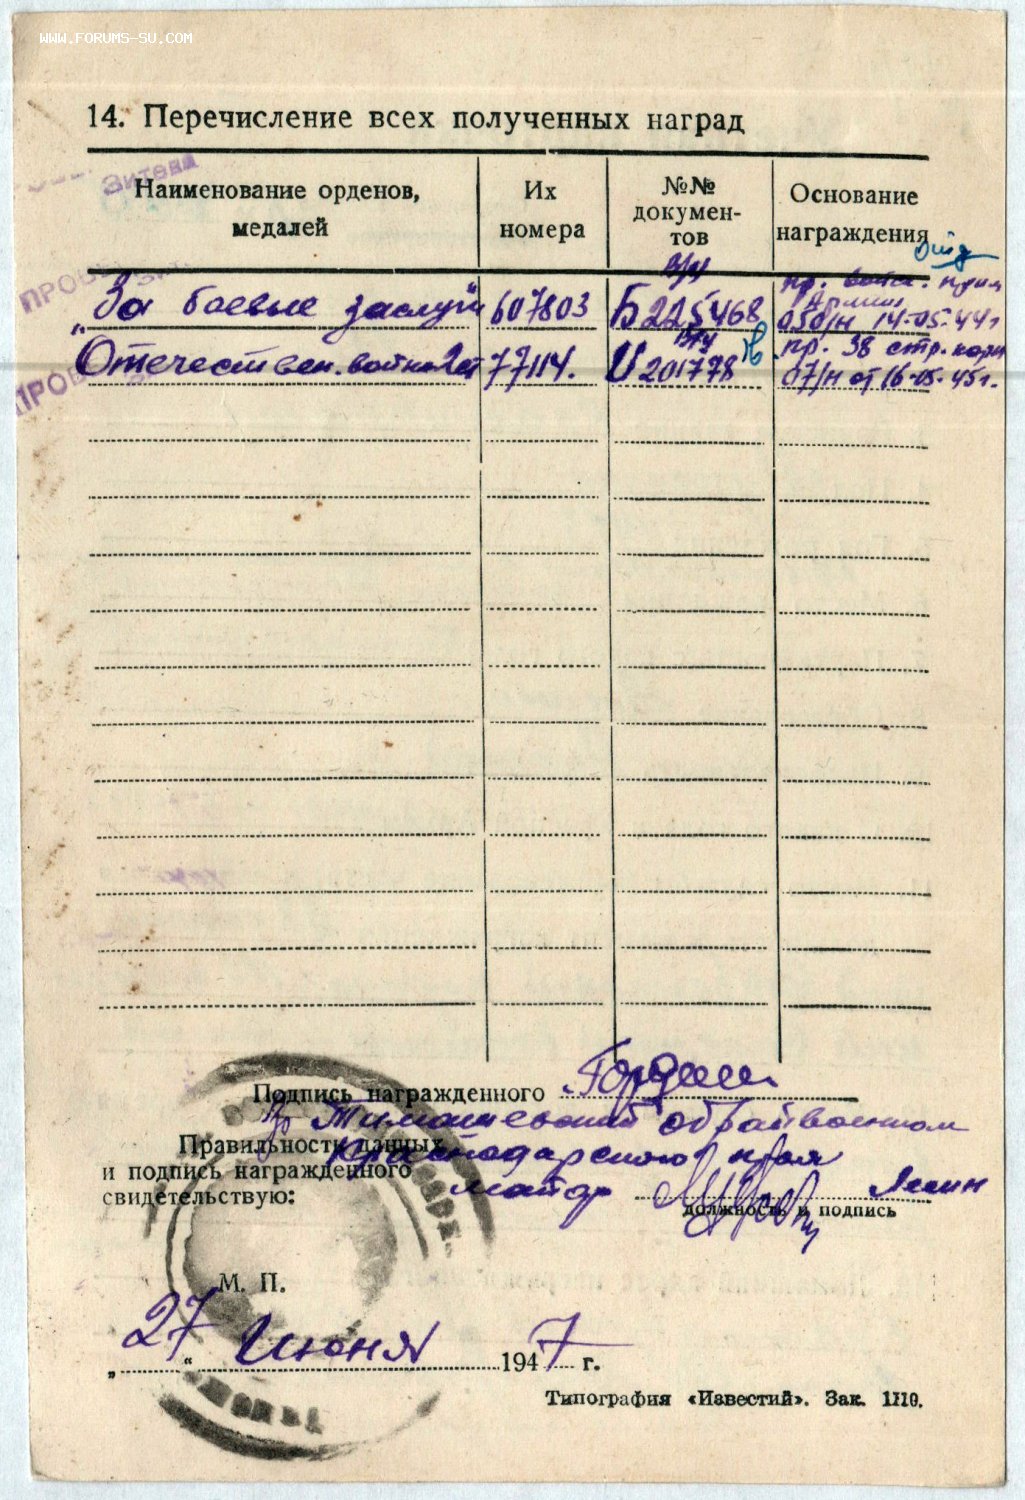 WWW.FORUMS-SU.COM
14. Перечисление всех полученных наград
Зитева
Наименование орденов, медалей
Их номера
№№ докумен-тов
Основание награждения
ПРОВ
За боевые заслуги 607803 Б 225468 пр. 050/н 14-05-44г
ПРОВ
Отечествен. война 2 ст 77114. И 201778 пр. 38 стр. корп 07/н от 16-05-45г.
Подпись награжденного
Правильность данных
и подпись награжденного
свидетельствую:
Тимашевский райвоенком
Краснодарского края
майор
должность и подпись
М. П.
„27“ июня 1947 г.
Типография «Известий». Зак. 1110.